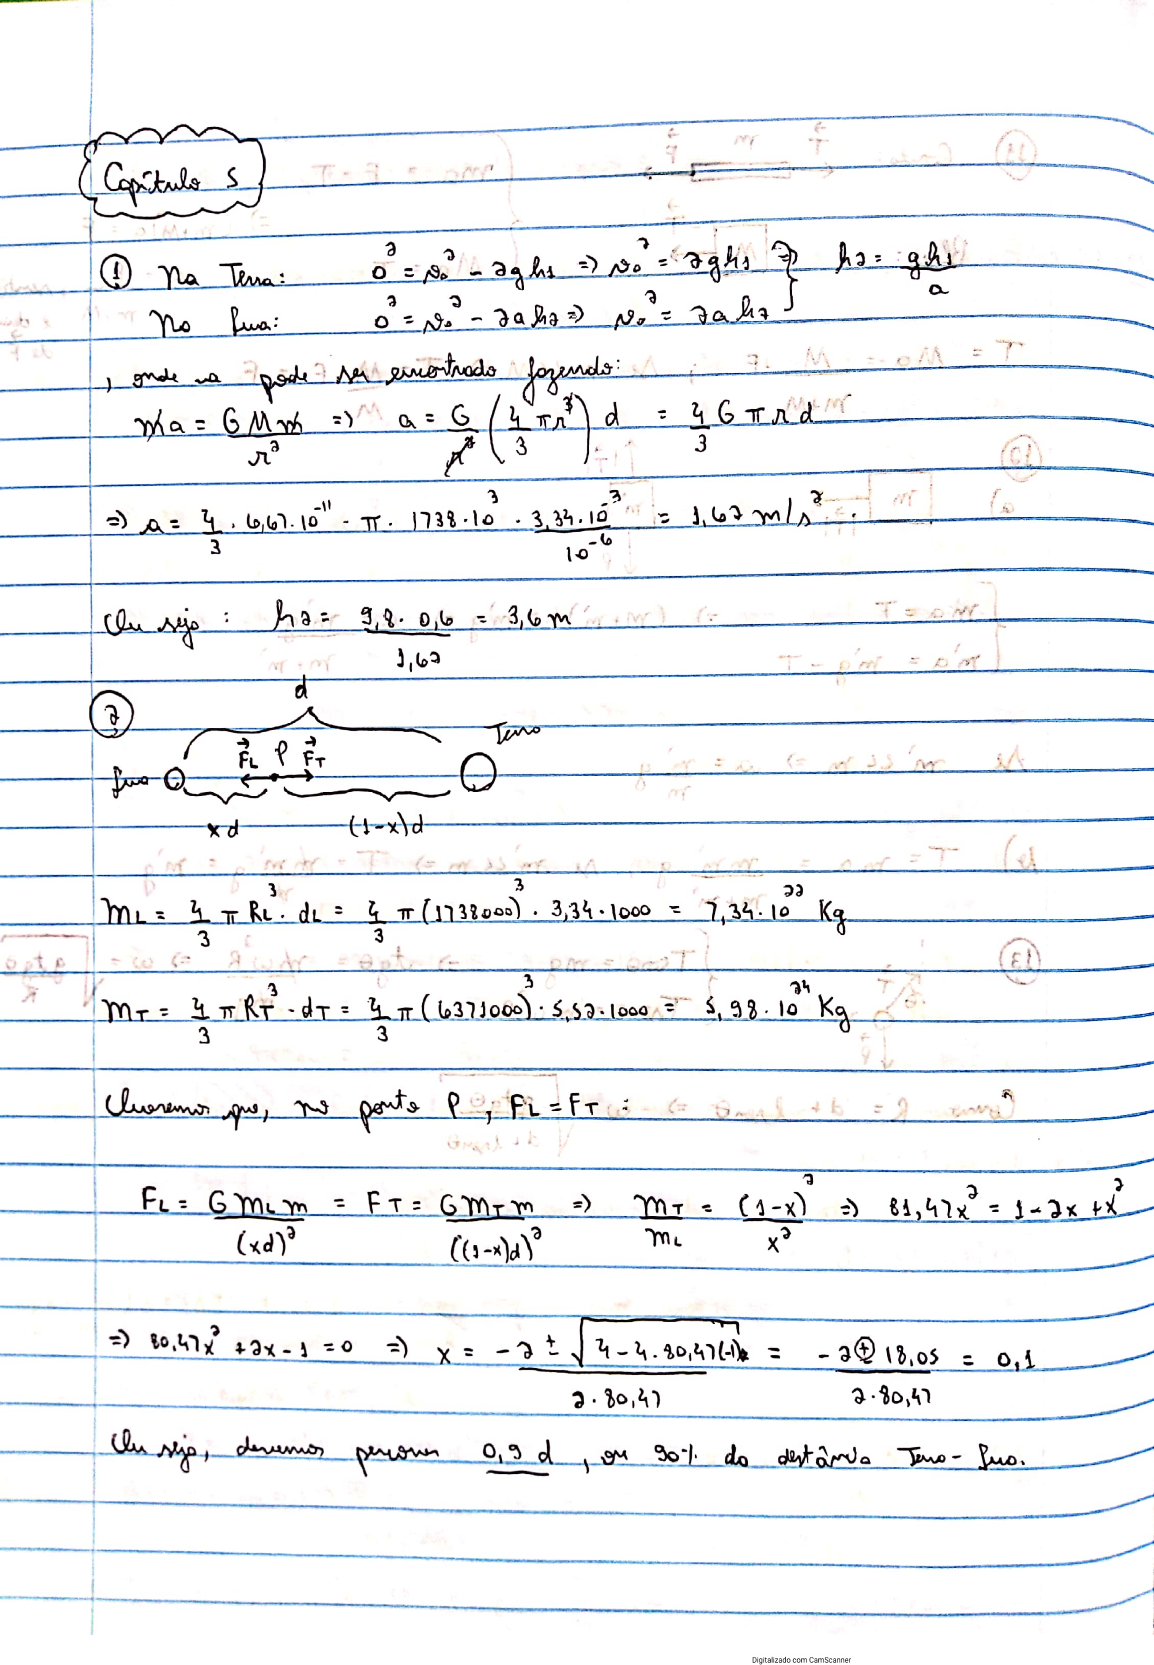 Capítulo 5
① Na Terra: 0² = v₀² - 2gh₁ => v₀² = 2gh₁ } => h₂ = gh₁/a
Na Lua: 0² = v₀² - 2ah₂ => v₀² = 2ah₂
, onde a pode ser encontrado fazendo:
ma = GMm/r² => a = G/r² (4/3 πr³) d = 4/3 G π r d
=> a = 4/3 . 6,67.10⁻¹¹ . π . 1738.10³ . 3,34.10⁻³/10⁻⁶ = 1,62 m/s².
Ou seja: h₂ = 9,8 . 0,6/1,62 = 3,6 m
②
d
Terra
F⃗L P F⃗T
Lua
xd (1-x)d
mL = 4/3 π RL³ . dL = 4/3 π (1738000)³ . 3,34.1000 = 7,34.10²² Kg
mT = 4/3 π RT³ . dT = 4/3 π (6371000)³ . 5,52.1000 = 5,98.10²⁴ Kg
Queremos que, no ponto P, FL = FT:
FL = GmLm/(xd)² = FT = GmTm/((1-x)d)² => mT/mL = (1-x)²/x² => 81,47x² = 1-2x+x²
=> 80,47x² + 2x - 1 = 0 => x = -2 ± √4-4.80,47(-1)/2.80,47 = -2 ± 18,05/2.80,47 = 0,1
Ou seja, devemos percorrer 0,9 d, ou 90% da distância Terra-Lua.
Digitalizado com CamScanner